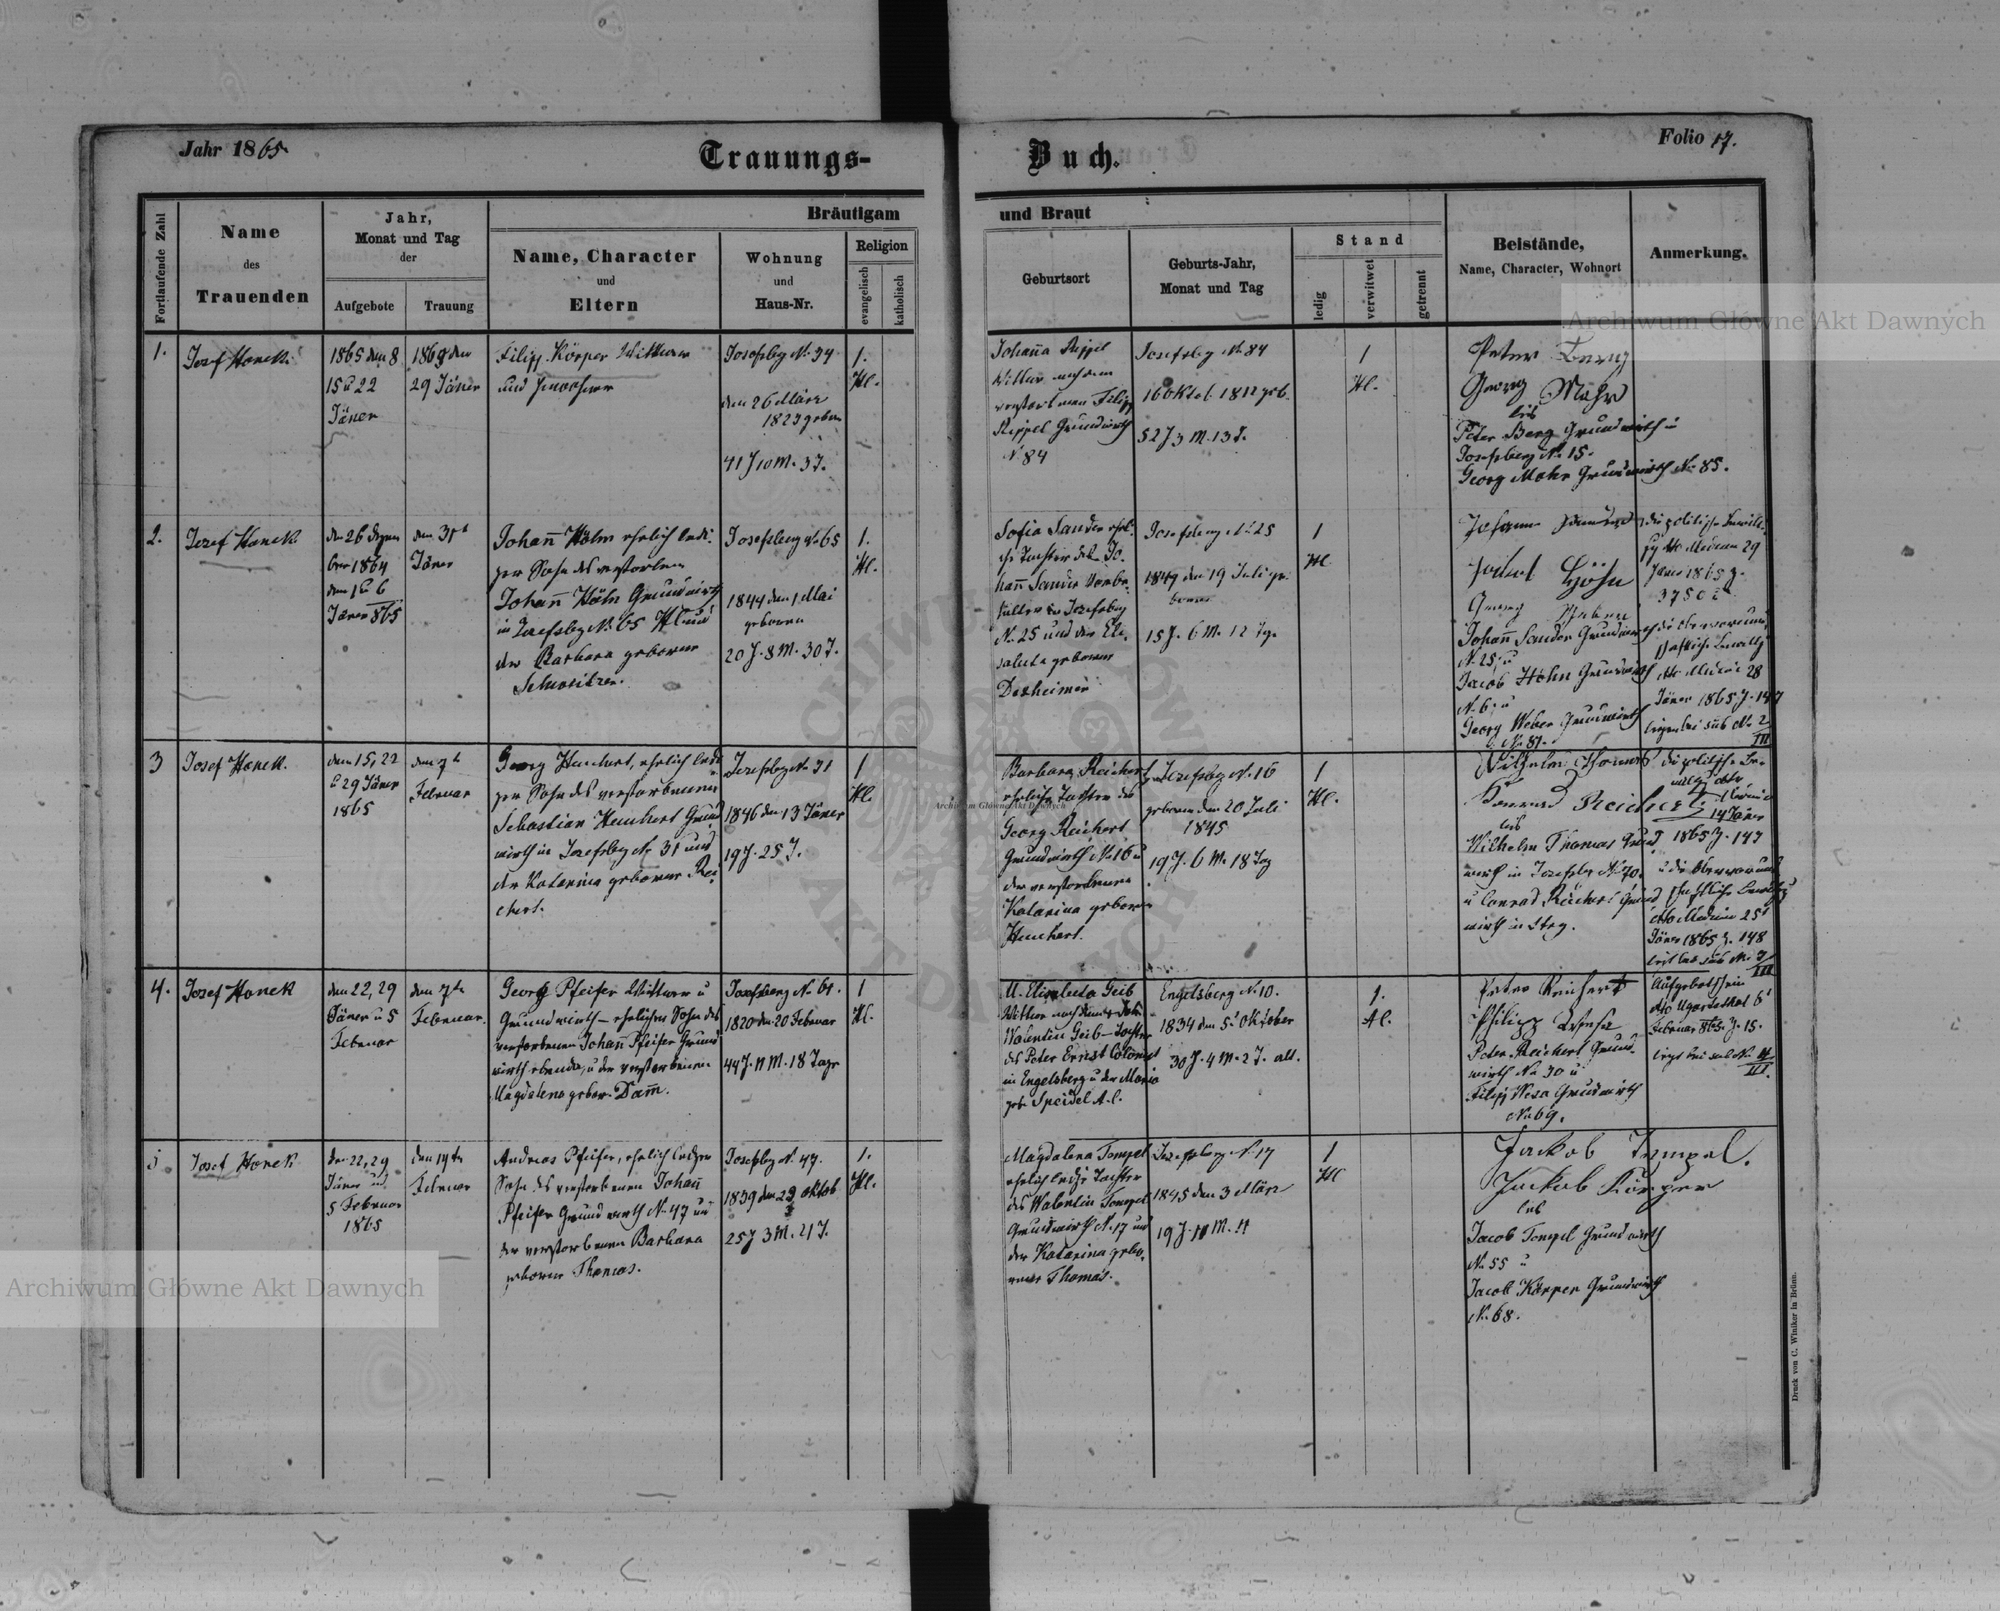 Jahr 1865.
Trauungs-
Buch.
Folio 17.
Fortlaufende Zahl
Name
des
Trauenden
Jahr,
Monat und Tag
der
Aufgebote
Trauung
Bräutigam
Name, Character
und
Eltern
Wohnung
und
Haus-Nr.
Religion
evangelisch
katholisch
und Braut
Geburtsort
Geburts-Jahr,
Monat und Tag
Stand
ledig
verwitwet
getrennt
Beistände,
Name, Character, Wohnort
Anmerkung.
1.
Josef Honek.
1865 den 8
15 u 22
Jäner
1865 den
29 Jäner
Filipp Körper Wittwer
und Inwohner
Josefsbg No. 34
den 26 März
1823 geboren
41 J 10 M. 3 T.
1.
Hl.
Johanna Rippel
Wittwe nach dem
verstorbenen Filipp
Rippel Grundwirth
N. 84
Josefsbg No 84
16 Oktob. 1812 geb.
52 J 3 M. 13 T.
1
Hl.
Peter Berg
Georg Mohr
Peter Berg Grundwirth in
Josefsberg No. 15.
Georg Mohr Grundwirth No. 85.
2.
Josef Honek
den 26 Dezem
ber 1864
den 1 u 6
Jäner 865
den 31t
Jäner
Johann Höhn ehelich ledi-
ger Sohn des verstorbenen
Johann Höhn Grundwirth
in Josefsbg No. 65 Hl und
der Barbara geborene
Schweitzer.
Josefsberg No 65
1844 den 1 Mai
geboren
20 J. 8 M. 30 T.
1.
Hl.
Sofia Sander eheli-
che Tochter des Jo-
hann Sander
in Josefsbg
N. 25 und der Eli-
sabeta geborene
Dexheimer
Josefsberg No 25
1849 den 19 Juli ge-
boren
15 J. 6 M. 12 Tg.
1
Hl.
Johann Sander
Jakob Höhn
Georg Weber
Johann Sander Grundwirth
No. 25, u
Jacob Höhn Grundwirth
No. 6, u
Georg Weber Grundwirth
No. 81.
die politische Bewilli-
gung dto Medenice 29
Jäner 1865 Z.
3750
Jäner 1865 Z. 147
liegen bei sub No. 2
III
3
Josef Honek.
den 15, 22
u 29 Jäner
1865
den 7t
Februar
Georg Heuchert, ehelich ledi-
ger Sohn des verstorbenen
Sebastian Heuchert Grund
wirth in Josefsbg No 31 und
der Katarina geborene Rei-
chert.
Josefsbg No 31
1846 den 13 Jäner
19 J. 25 T.
1
Hl.
Barbara Reichert
eheliche Tochter des
Georg Reichert
Grundwirth No. 16 u
der verstorbenen
Katarina geborene
Heuchert.
Josefsbg No. 16
geboren den 20 Juli
1845
19 J. 6 M. 18 Tag
1
Hl.
Wilhelm Thomas
Konrad Reichert
Wilhelm Thomas Grund
wirth in Josefsbg No 40.
u Conrad Reichert Grund
wirth in Jbg.
die politische Be-
14 Jäner
1865 Z. 147
dto Medenice 25t
Jäner 1865 Z. 148
liegt bei sub No. 3
III
4.
Josef Honek
den 22, 29
Jäner u 5
Februar
den 7te
Februar.
Georg Pfeifer Wittwer u
Grundwirth – ehelicher Sohn des
verstorbenen Johann Pfeifer Grund
wirth ebenda, u der verstorbenen
Magdalena gebor. Damm.
Josefsberg No. 61.
1820 den 20 Februar
44 J. 11 M. 18 Tage
1
Hl.
M. Elisabeta Geib
Wittwe nach dem
Walentin Geib – Tochter
des Peter Ernst Colonist
in Engelsberg u der Maria
geb. Speidel A. C.
Engelsberg No. 10.
1834 den 5t Oktober
30 J. 4 M. 2 T. alt.
1.
Hl.
Peter Reichert
Philipp Wesa
Peter Reichert Grund-
wirth No 30 u
Filipp Wesa Grundwirth
No 69.
Aufgebotschein
dto Ugartsthal 6t
Februar 865 Z. 15.
liegt bei sub No. 4
III.
5
Josef Honek
den 22, 29
Jäner und
5 Februar
1865
den 14te
Februar
Andreas Pfeifer, ehelich lediger
Sohn des verstorbenen Johann
Pfeifer Grundwirth No. 47 und
der verstorbenen Barbara
geborene Thomas.
Josefsbg No. 47.
1839 den 23 Oktob
25 J 3 M. 21 T.
1.
Hl.
Magdalena Tempel
ehelich ledige Tochter
des Walentin Tempel
Grundwirth No. 17 und
der Katarina gebo-
rene Thomas.
Josefsbg No. 17
1845 den 3 März
19 J. 11 M. 11
1
Hl
Jackob Tempel.
Jackob Körper
Jacob Tempel Grundwirth
No. 55 u
Jacob Körper Grundwirth
No. 68.
Druck von C. Winiker in Brünn.
Archiwum Główne Akt Dawnych
Archiwum Główne Akt Dawnych
Archiwum Główne Akt Dawnych